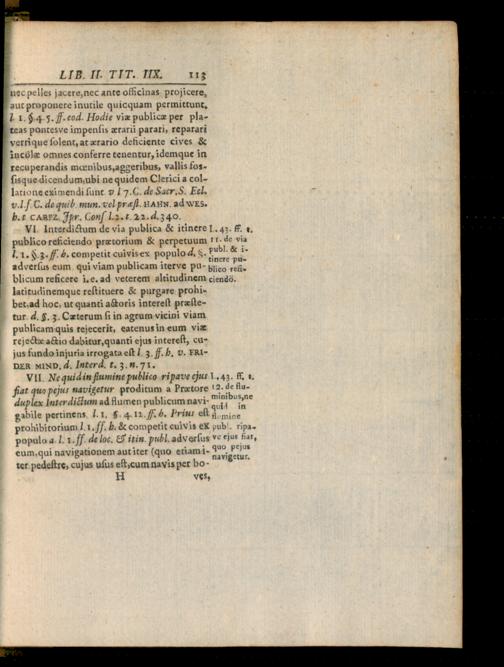 LIB. II. TIT. IIX. 113
nec pelles jacere, nec ante officinas projicere,
aut proponere inutile quicquam permittunt,
l 1. §. 4. 5. ff. eod. Hodie viæ publicæ per pla-
teas pontesve impensis ærarii parari, reparari
verrique solent, at ærario deficiente cives &
incolæ omnes conferre tenentur, idemque in
recuperandis mœnibus, aggeribus, vallis fos-
sisque dicendum, ubi ne quidem Clerici a col-
latione eximendi sunt. v l 7. C. de Sacr. S. Ecl.
v. l. f. C. de quib. mun. vel præst. HAHN. ad WES.
h. t CARPZ. Jpr. Cons l. 2. t. 22. d. 340.
VI. Interdictum de via publica & itinere
publico reficiendo prætorium & perpetuum
l. 1. §. 3. ff. h. competit cuivis ex populo d. §.
adversus eum qui viam publicam iterve pu-
blicum reficere i. e. ad veterem altitudinem
latitudinemque restituere & purgare prohi-
bet, ad hoc, ut quanti actoris interest præste-
tur. d. §. 3. Cæterum si in agrum vicini viam
publicam quis rejecerit, eatenus in eum viæ
rejectæ actio dabitur, quanti ejus interest, cu-
jus fundo injuria irrogata est l. 3. ff. h. v. FRI-
DER MIND. d. Interd. t. 3. n. 71.
VII. Ne quid in flumine publico ripave ejus
fiat quo pejus navigetur proditum a Prætore
duplex Interdictum ad flumen publicum navi-
gabile pertinens. l. 1. §. 4. 12. ff. h. Prius est
prohibitorium l. 1. ff. h. & competit cuivis ex
populo a. l. 1. ff. de loc. & itin. publ. adversus
eum, qui navigationem aut iter (quo etiam i-
ter pedestre, cujus usus est, cum navis per bo-
H ves,
L. 43. ff. t.
11. de via
publ. & i-
tinere pu-
blico refi-
ciendo.
L. 43. ff. t.
12. de flu-
minibus, ne
quid in
flumine
publ. ripa-
ve ejus fiat,
quo pejus
navigetur.